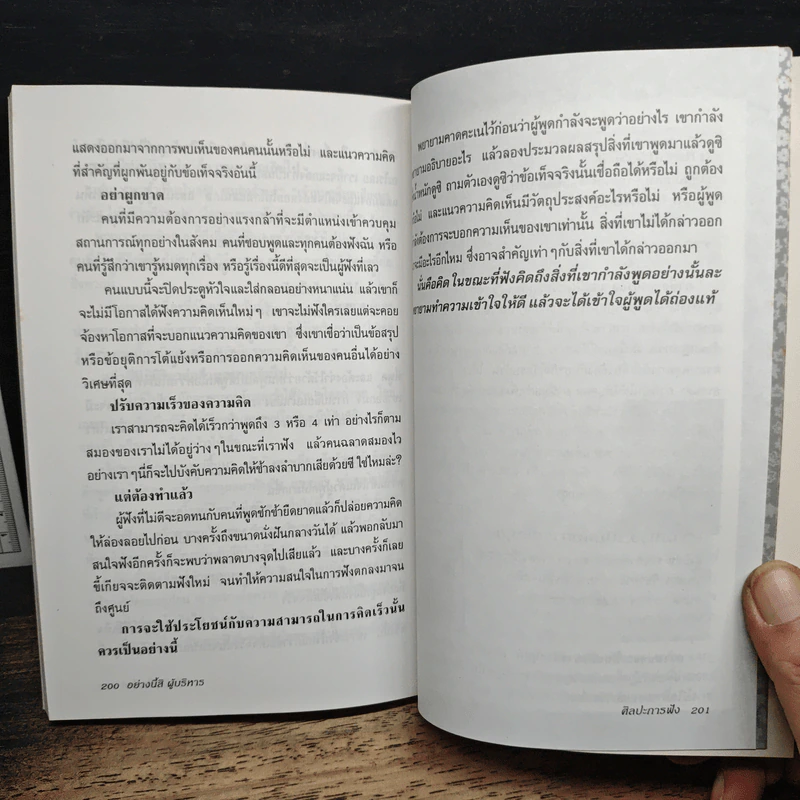 แสดงออกมาจากการพบเห็นของคนคนนั้นหรือไม่ และแนวความคิด
ที่สำคัญที่ผูกพันอยู่กับข้อเท็จจริงอันนี้
อย่าผูกขาด
คนที่มีความต้องการอย่างแรงกล้าที่จะมีตำแหน่งเข้าควบคุม
สถานการณ์ทุกอย่างในสังคม คนที่ชอบพูดและทุกคนต้องฟังฉัน หรือ
คนที่รู้สึกว่าเขารู้หมดทุกเรื่อง หรือรู้เรื่องนี้ดีที่สุดจะเป็นผู้ฟังที่เลว
คนแบบนี้จะปิดประตูหัวใจและใส่กลอนอย่างหนาแน่น แล้วเขาก็
จะไม่มีโอกาสได้ฟังความคิดเห็นใหม่ๆ เขาจะไม่ฟังใครเลยแต่จะคอย
จ้องหาโอกาสที่จะบอกแนวความคิดของเขา ซึ่งเขาเชื่อว่าเป็นข้อสรุป
หรือข้อยุติการโต้แย้งหรือการออกความคิดเห็นของคนอื่นได้อย่าง
วิเศษที่สุด
ปรับความเร็วของความคิด
เราสามารถจะคิดได้เร็วกว่าพูดถึง 3 หรือ 4 เท่า อย่างไรก็ตาม
สมองของเราไม่ได้อยู่ว่างๆในขณะที่เราฟัง แล้วคนฉลาดสมองไว
อย่างเราๆนี้ก็จะไปบังคับความคิดให้ช้าลงลำบากเสียด้วยซี ใช่ไหมล่ะ?
แต่ต้องทำแล้ว
ผู้ฟังที่ไม่ดีจะอดทนกับคนที่พูดชักช้ายืดยาดแล้วก็ปล่อยความคิด
ให้ล่องลอยไปก่อน บางครั้งถึงขนาดนั่งฝันกลางวันได้ แล้วพอกลับมา
สนใจฟังอีกครั้งก็จะพบว่าพลาดบางจุดไปเสียแล้ว และบางครั้งก็เลย
ขี้เกียจจะติดตามฟังใหม่ จนทำให้ความสนใจในการฟังตกลงมาจน
ถึงศูนย์
การจะใช้ประโยชน์กับความสามารถในการคิดเร็วนั้น
ควรเป็นอย่างนี้
200 อย่างนี้สิ ผู้บริหาร
พยายามคาดคะเนไว้ก่อนว่าผู้พูดกำลังจะพูดว่าอย่างไร เขากำลัง
อธิบายอะไร แล้วลองประมวลผลสรุปสิ่งที่เขาพูดมาแล้วดูซิ
ดูซิ ถามตัวเองดูซิว่าข้อเท็จจริงนั้นเชื่อถือได้หรือไม่ ถูกต้อง
และแนวความคิดเห็นมีวัตถุประสงค์อะไรหรือไม่ หรือผู้พูด
ต้องการจะบอกความเห็นของเขาเท่านั้น สิ่งที่เขาไม่ได้กล่าวออก
มีอะไรอีกไหม ซึ่งอาจสำคัญเท่าๆกับสิ่งที่เขาได้กล่าวออกมา
นั่นคือคิด ในขณะที่ฟังคิดถึงสิ่งที่เขากำลังพูดอย่างนั้นละ
ทำความเข้าใจให้ดี แล้วจะได้เข้าใจผู้พูดได้ถ่องแท้
ศิลปะการฟัง 201